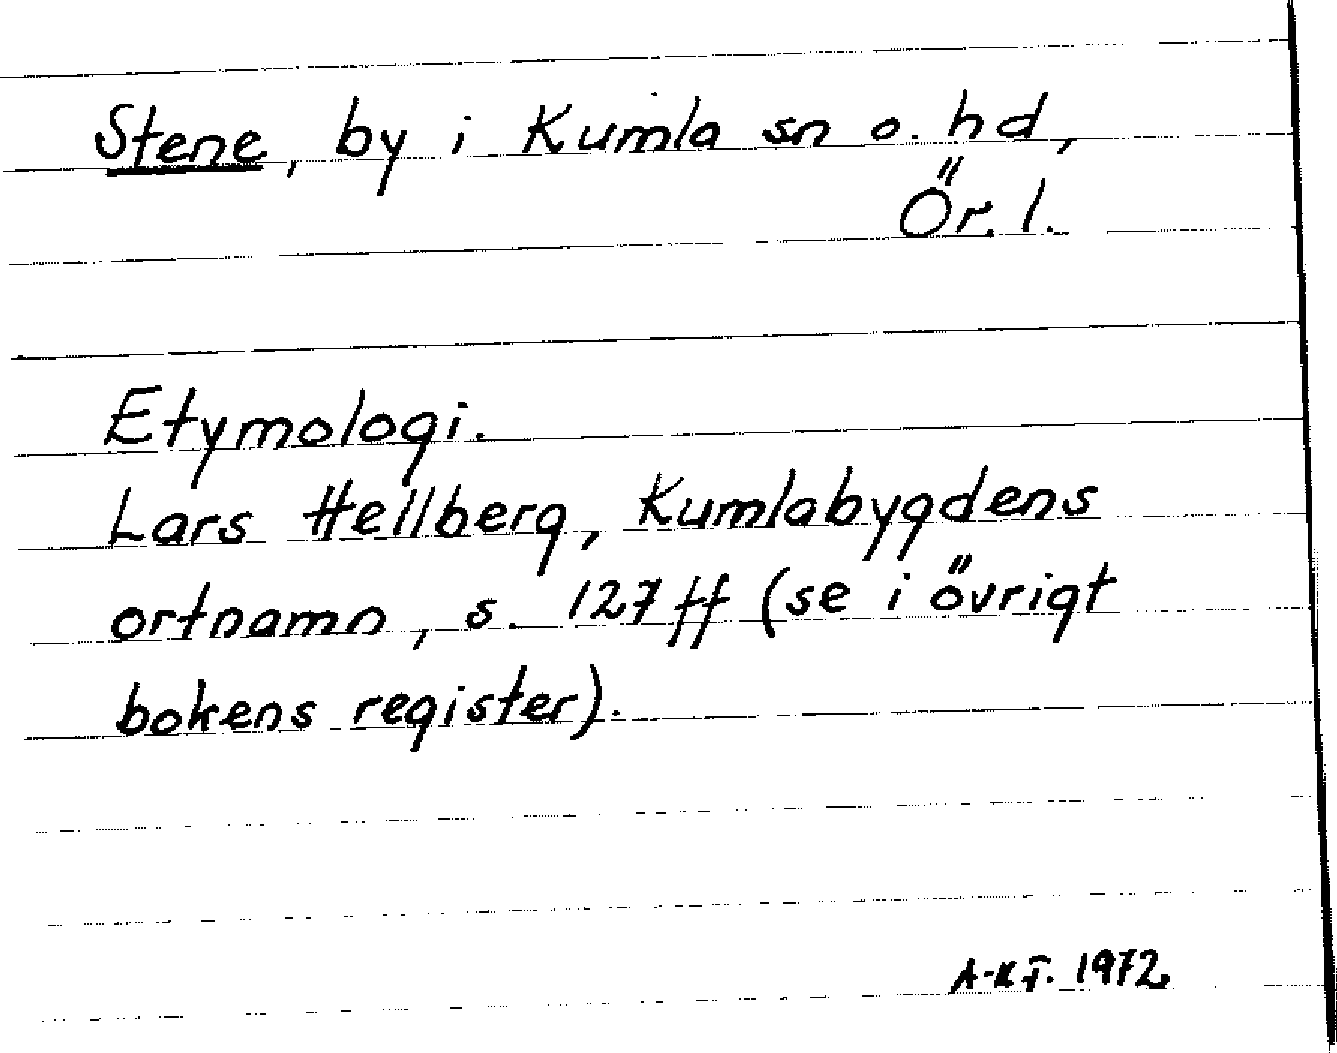 Stene, by i Kumla sn o. hd,
Ör. l.
Etymologi.
Lars Hellberg, Kumlabygdens
ortnamn, s. 127 ff (se i övrigt
bokens register).
A-K F. 1972